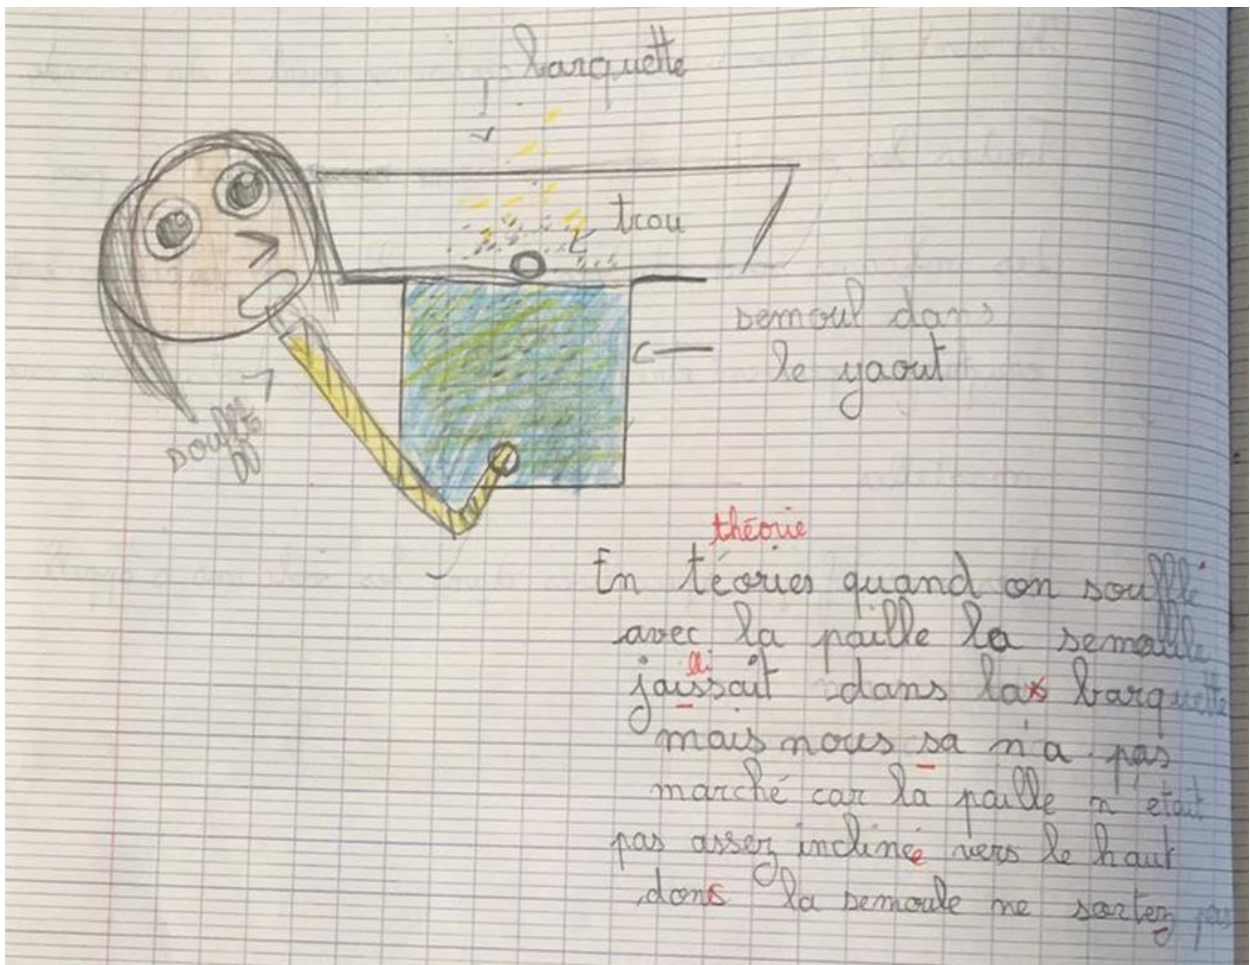 barquette
trou
semoul dans
le yaout
théorie
En téories quand on souffle
avec la paille la semoule
jaissait dans las barquette
mais nous sa n'a pas
marché car la paille n'etait
pas assez inclinée vers le haut
donc la semoule ne sortez pas